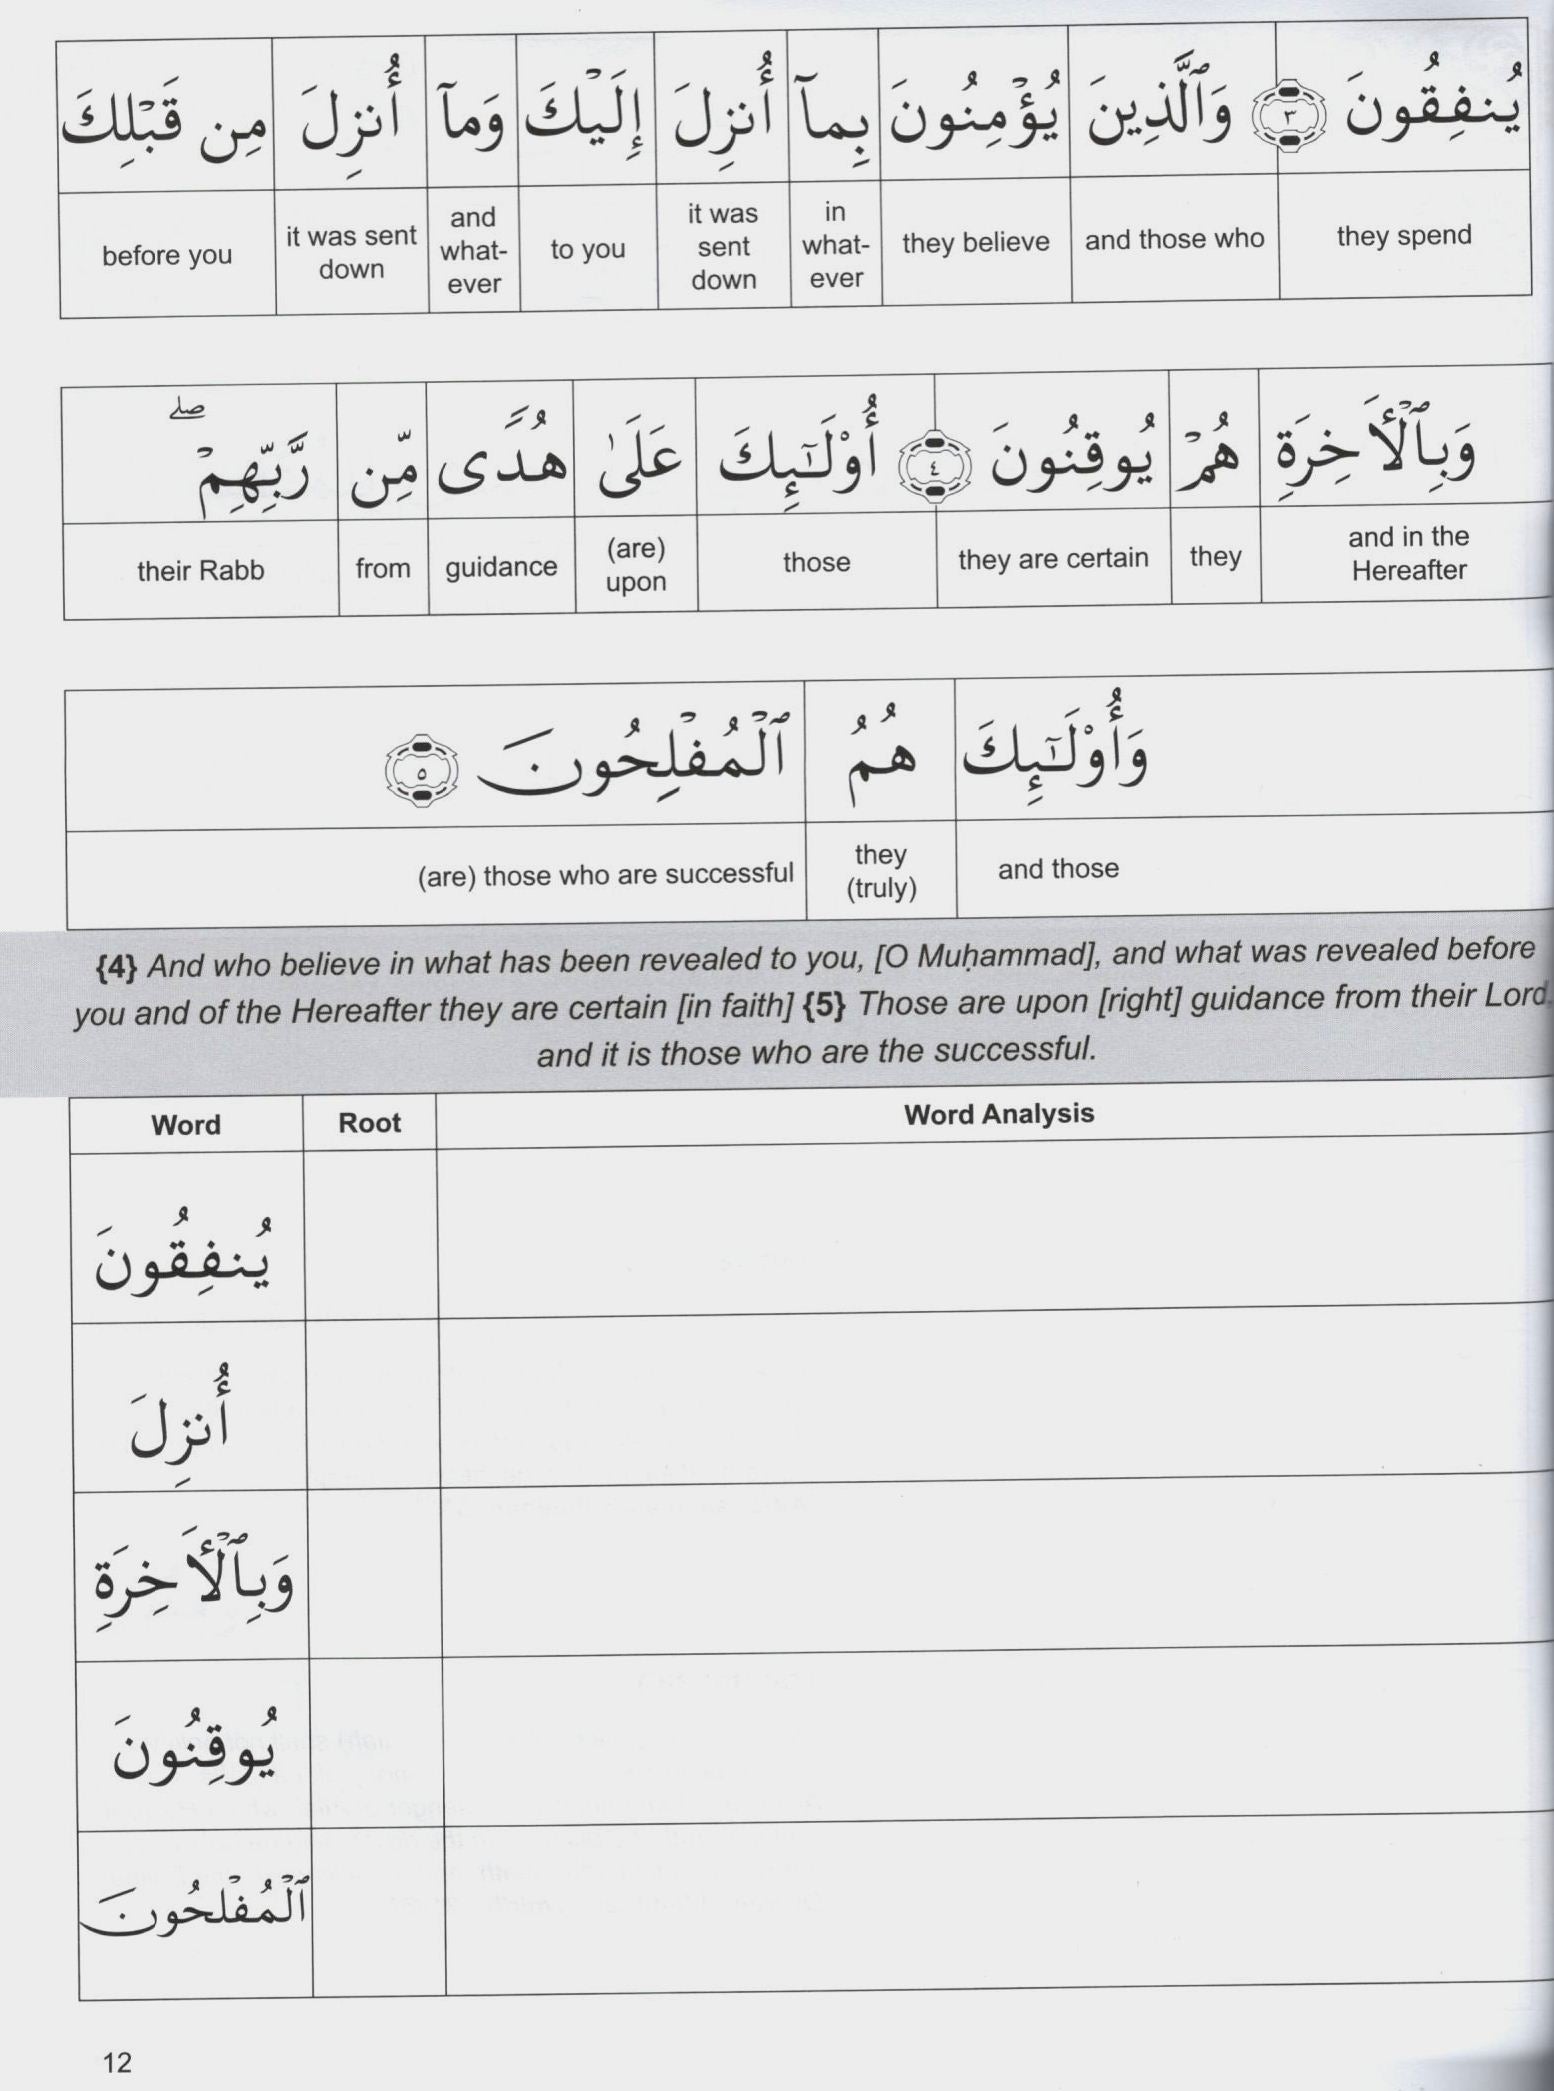 يُنفِقُونَ ٣ وَٱلَّذِينَ يُؤْمِنُونَ بِمَآ أُنزِلَ إِلَيْكَ وَمَآ أُنزِلَ مِن قَبْلِكَ
before you it was sent down and what-ever to you it was sent down in what-ever they believe and those who they spend
وَبِٱلْأَخِرَةِ هُمْ يُوقِنُونَ ٤ أُوْلَٰٓئِكَ عَلَىٰ هُدًى مِّن رَّبِّهِمْ ۖ
their Rabb from guidance (are) upon those they are certain they and in the Hereafter
وَأُوْلَٰٓئِكَ هُمُ ٱلْمُفْلِحُونَ ٥
(are) those who are successful they (truly) and those
{4} And who believe in what has been revealed to you, [O Muḥammad], and what was revealed before
you and of the Hereafter they are certain [in faith] {5} Those are upon [right] guidance from their Lord,
and it is those who are the successful.
Word Root Word Analysis
يُنفِقُونَ
أُنزِلَ
وَبِٱلْأَخِرَةِ
يُوقِنُونَ
ٱلْمُفْلِحُونَ
12